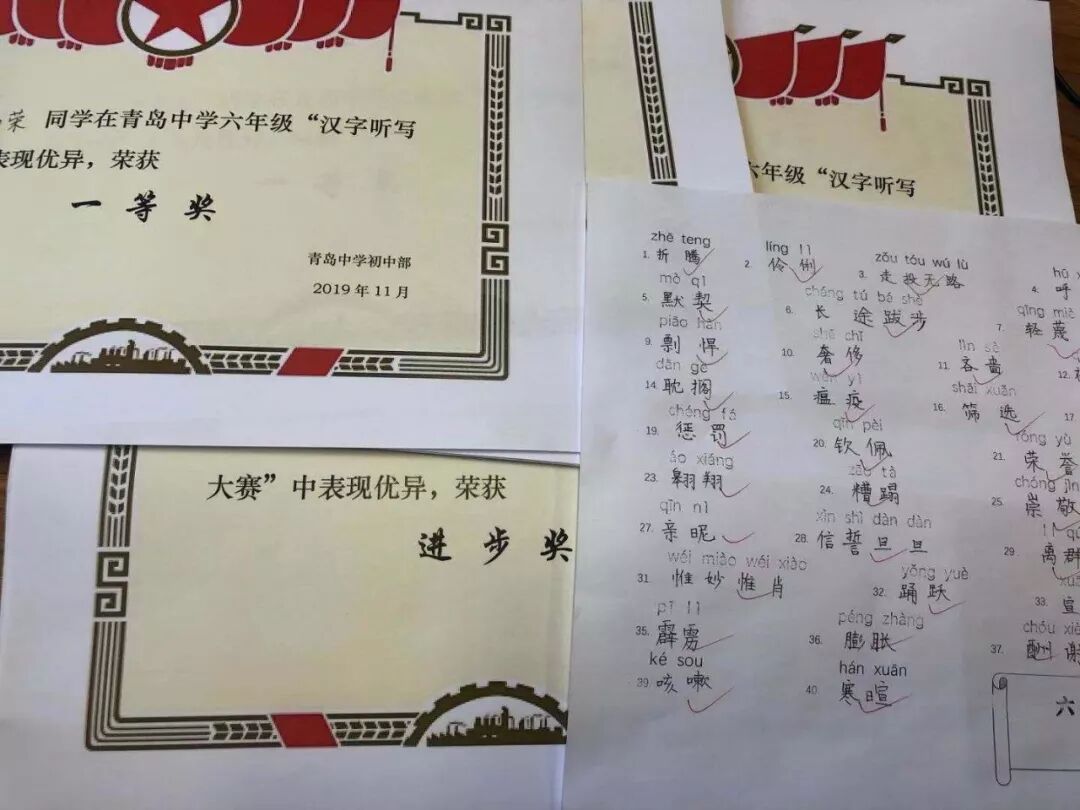 荣 同学在青岛中学六年级“汉字听写
表现优异，荣获
一等奖
青岛中学初中部
2019年11月
六年级“汉字听写
大赛”中表现优异，荣获
进步奖
zhē teng líng lì zǒu tóu wú lù
1. 折腾 2. 伶俐 3. 走投无路 4. 呼
mò qì cháng tú bá shè qīng miè
5. 默契 6. 长途跋涉 7. 轻蔑
piāo hàn shē chǐ lìn sè
9. 剽悍 10. 奢侈 11. 吝啬 12.
dān gē wēn yì shāi xuǎn
14. 耽搁 15. 瘟疫 16. 筛选 17.
chéng fá qīn pèi róng yù
19. 惩罚 20. 钦佩 21. 荣誉
áo xiáng zāo tà chóng jìn
23. 翱翔 24. 糟蹋 25. 崇敬
qīn nì xìn shì dàn dàn lí qú
27. 亲昵 28. 信誓旦旦 29. 离群
wéi miào wéi xiào yǒng yuè
31. 惟妙惟肖 32. 踊跃 33. 宣
pī lì péng zhàng chóu xiè
35. 霹雳 36. 膨胀 37. 酬谢
ké sou hán xuān
39. 咳嗽 40. 寒暄
六